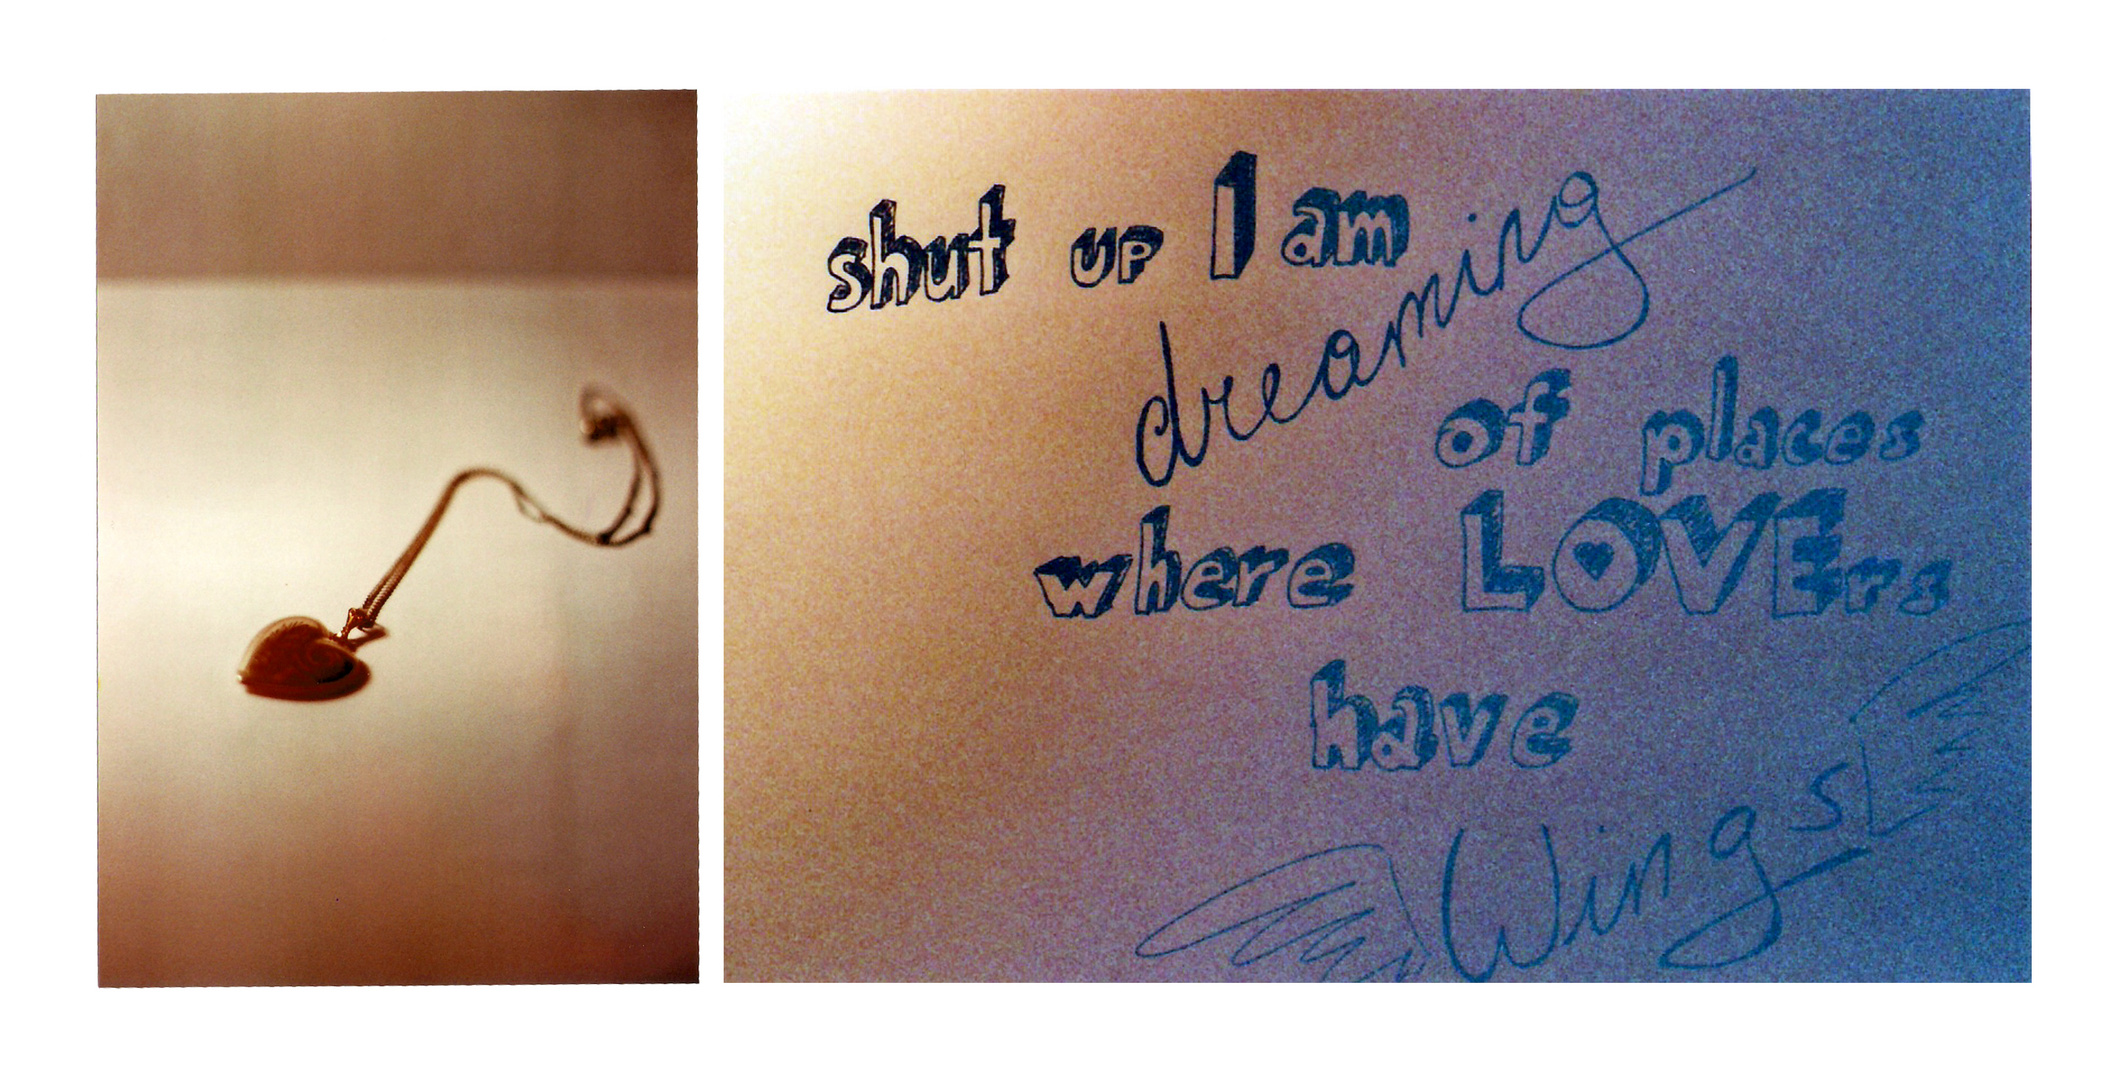 shut up I am
dreaming
of places
where LOVErs
have
Wings